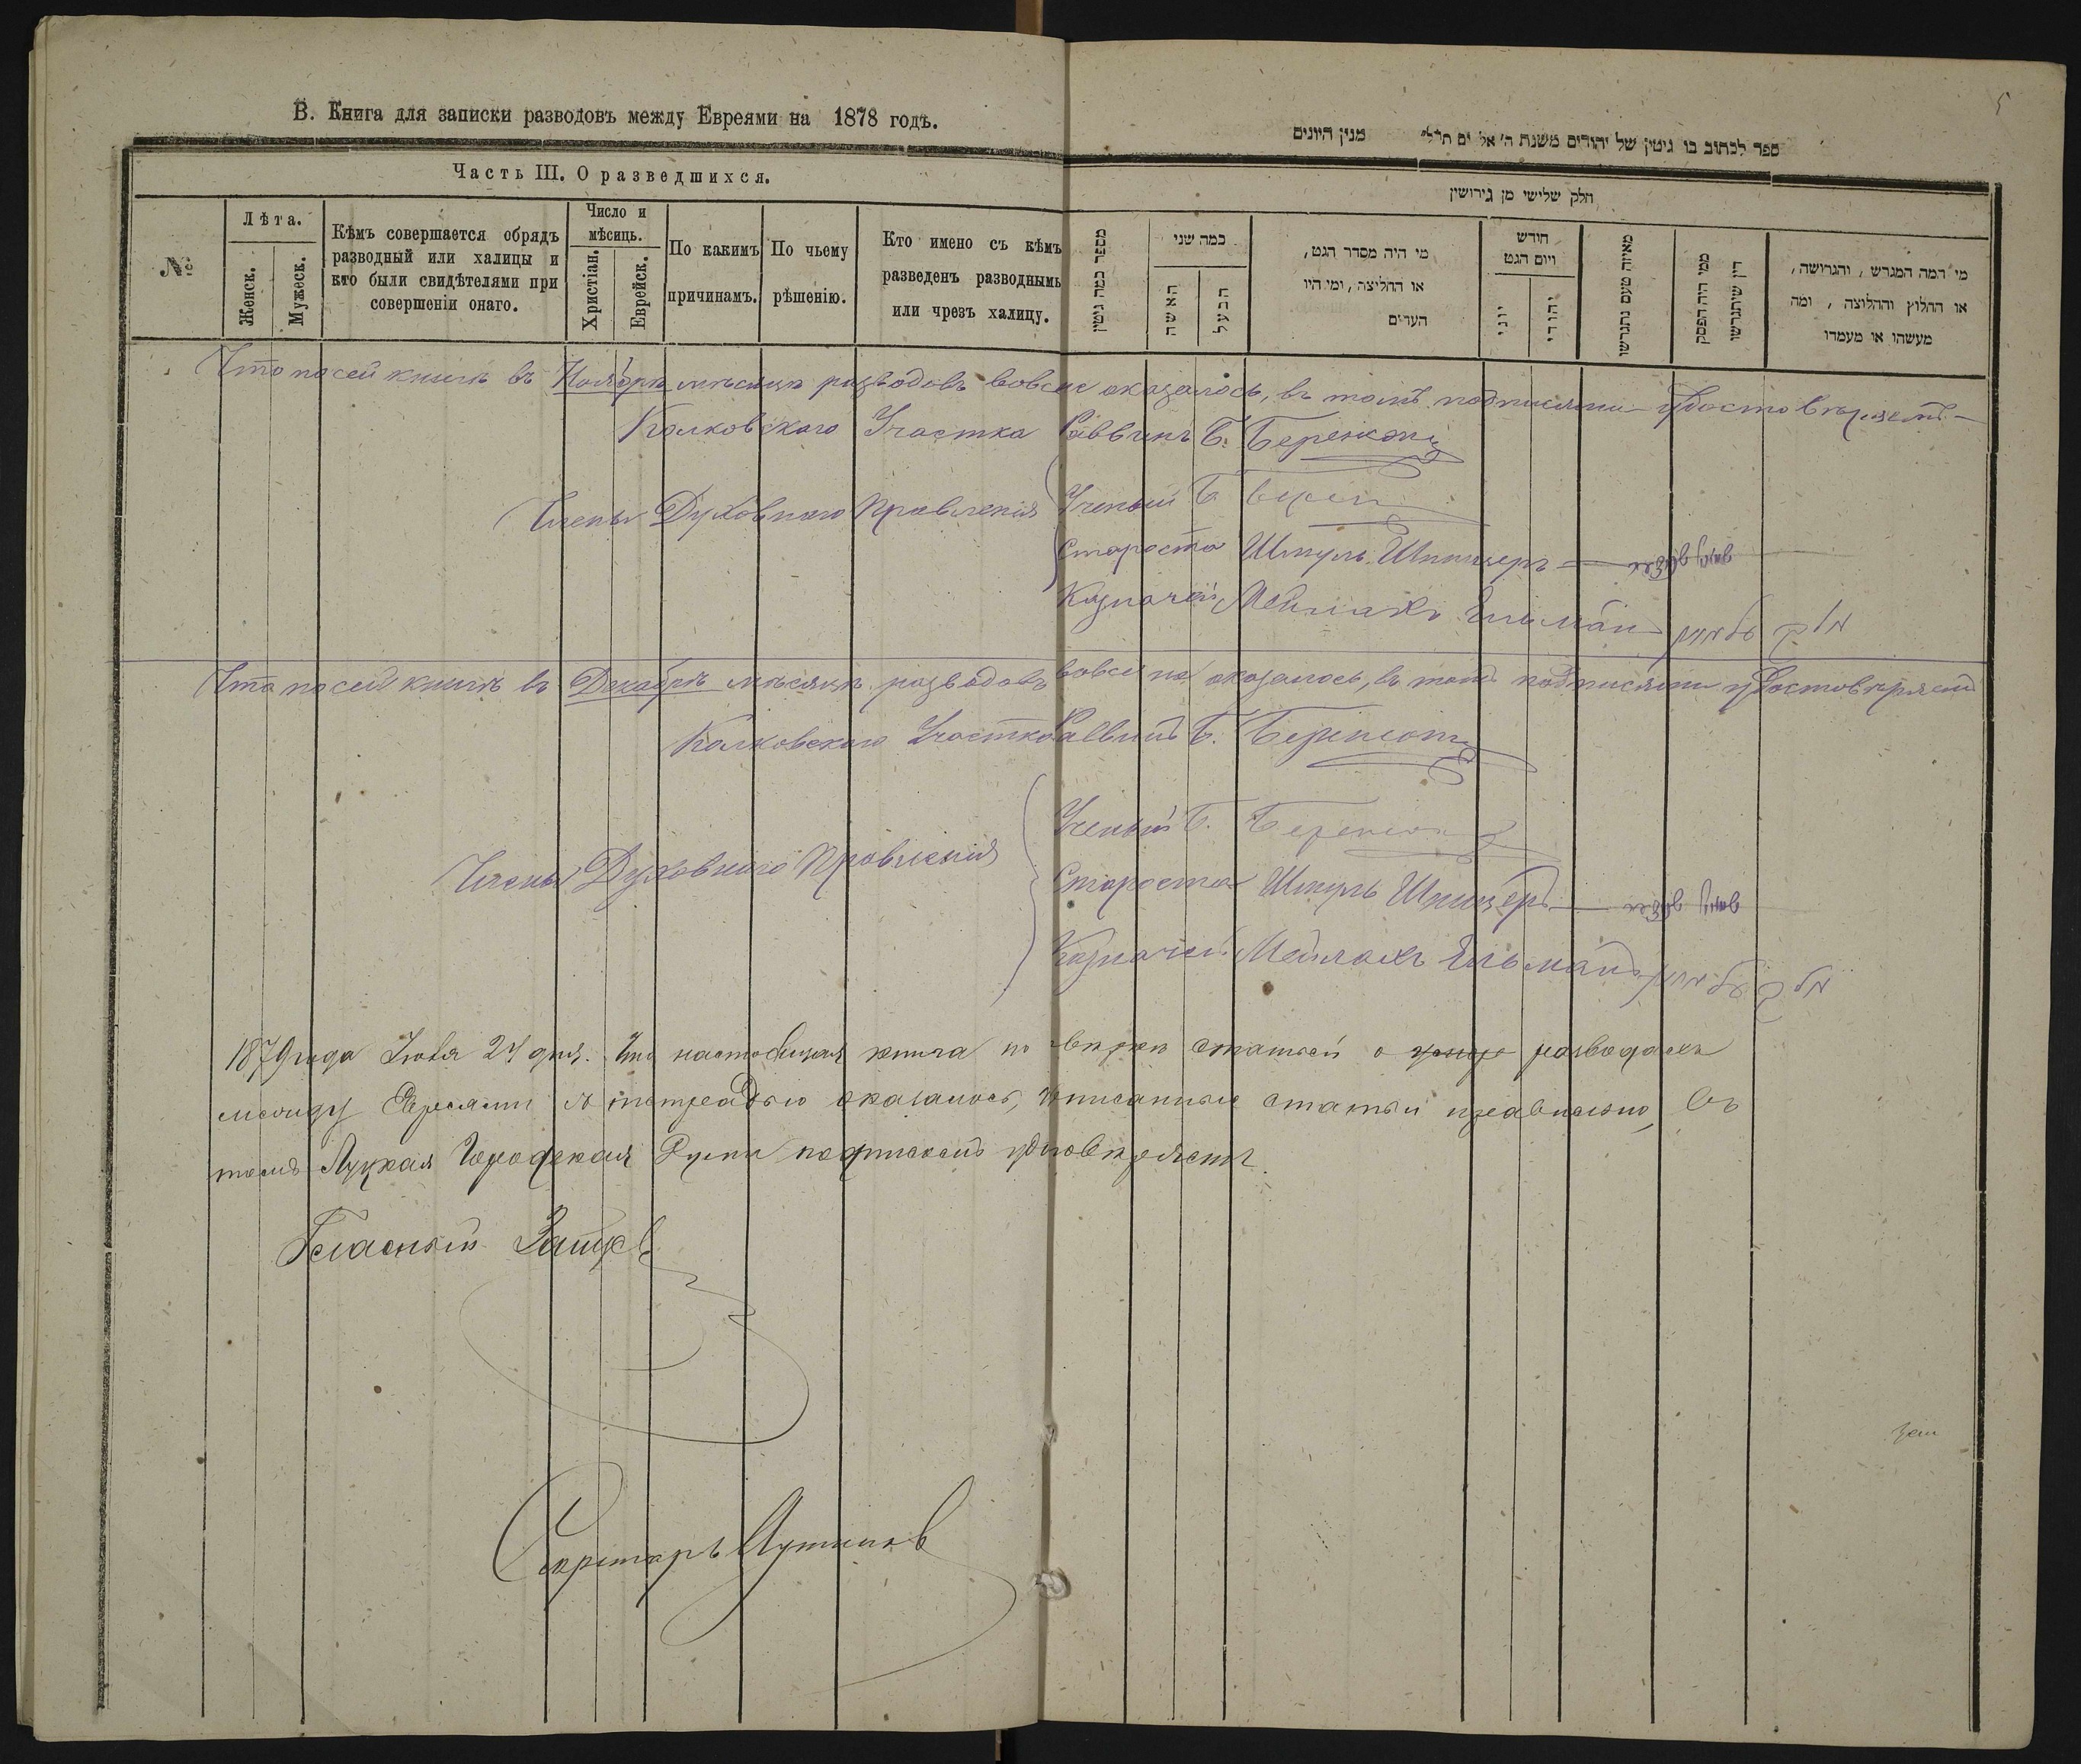 5
В. Книга для записки разводовъ между Евреями на 1878 годъ.
ספר לכתוב בו גיטין של יהודים משנת ה' אל ים תרל" מנין היונים
Часть III. О разведшихся.
חלק שלישי מן גירושין
№
Лѣта.
Женск.
Мужеск.
Кѣмъ совершается обрядъ
разводный или халицы и
кто были свидѣтелями при
совершеніи онаго.
Число и
мѣсяць.
Христіан.
Еврейск.
По какимъ
причинамъ.
По чьему
рѣшенію.
Кто имено съ кѣмъ
разведенъ разводнымъ
или чрезъ халицу.
מספר כמה גיטין
כמה שני
האשה
הבעל
מי היה מסדר הגט,
או החליצה, ומי היו
העדים
חודש
ויום הגט
יוני
יהודי
מאיזה טעם נתגרשו
ממי היה הפסק
דין שיתגרשו
מי המה המגרש, והגרושה,
או החלוץ והחלוצה, ומה
מעשהו או מעמדו
Что по сей книгѣ въ Ноябрѣ мѣсяцѣ разводовъ вовсе оказалось, въ томъ подписями удостовѣряемъ
Колковского Участка Раввинъ Б. Беренсонъ
Члены Духовного Правленія
Ученый Б.
Староста Шмуль Шпицеръ
Казначей Мейлахъ Гельманъ
Что по сей книгѣ въ Декабрѣ мѣсяцѣ разводовъ вовсе не оказалось, въ томъ подписями удостовѣряемъ
Колковского Участка Раввинъ Б. Беренсонъ
Члены Духовного Правленія
Ученый Б. Беренсонъ
Староста Шмуль Шпицеръ
Казначей Мейлахъ Гельманъ
1879 года 24 дня. Что настоящая книга по статьей о разводахъ
между Евреями оказалось, статьи правильно, въ
томъ Луцкая Городская Дума подписомъ удостовѣряетъ.
Гласный
Секретарь